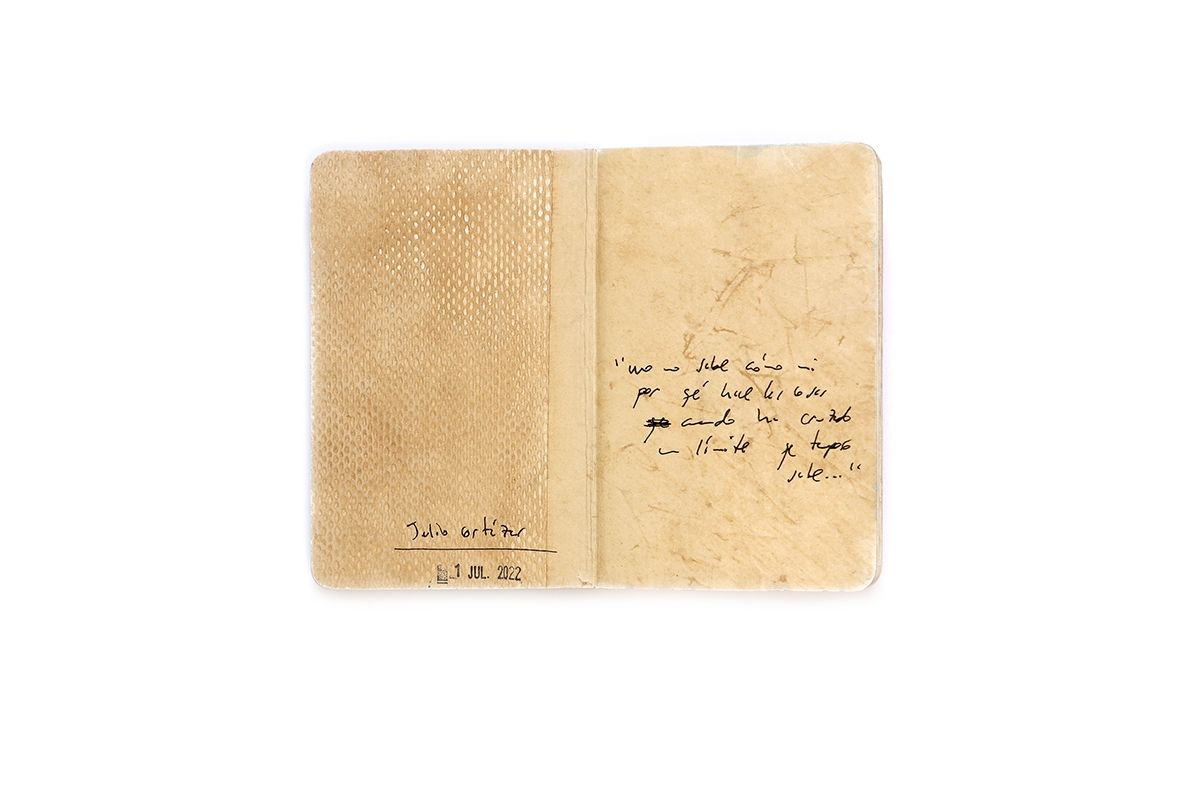 Julio Cortázar
1 JUL. 2022
"uno no sabe cómo ni
por qué hace las cosas
cuando ha cruzado
un límite que tampoco
sabe..."